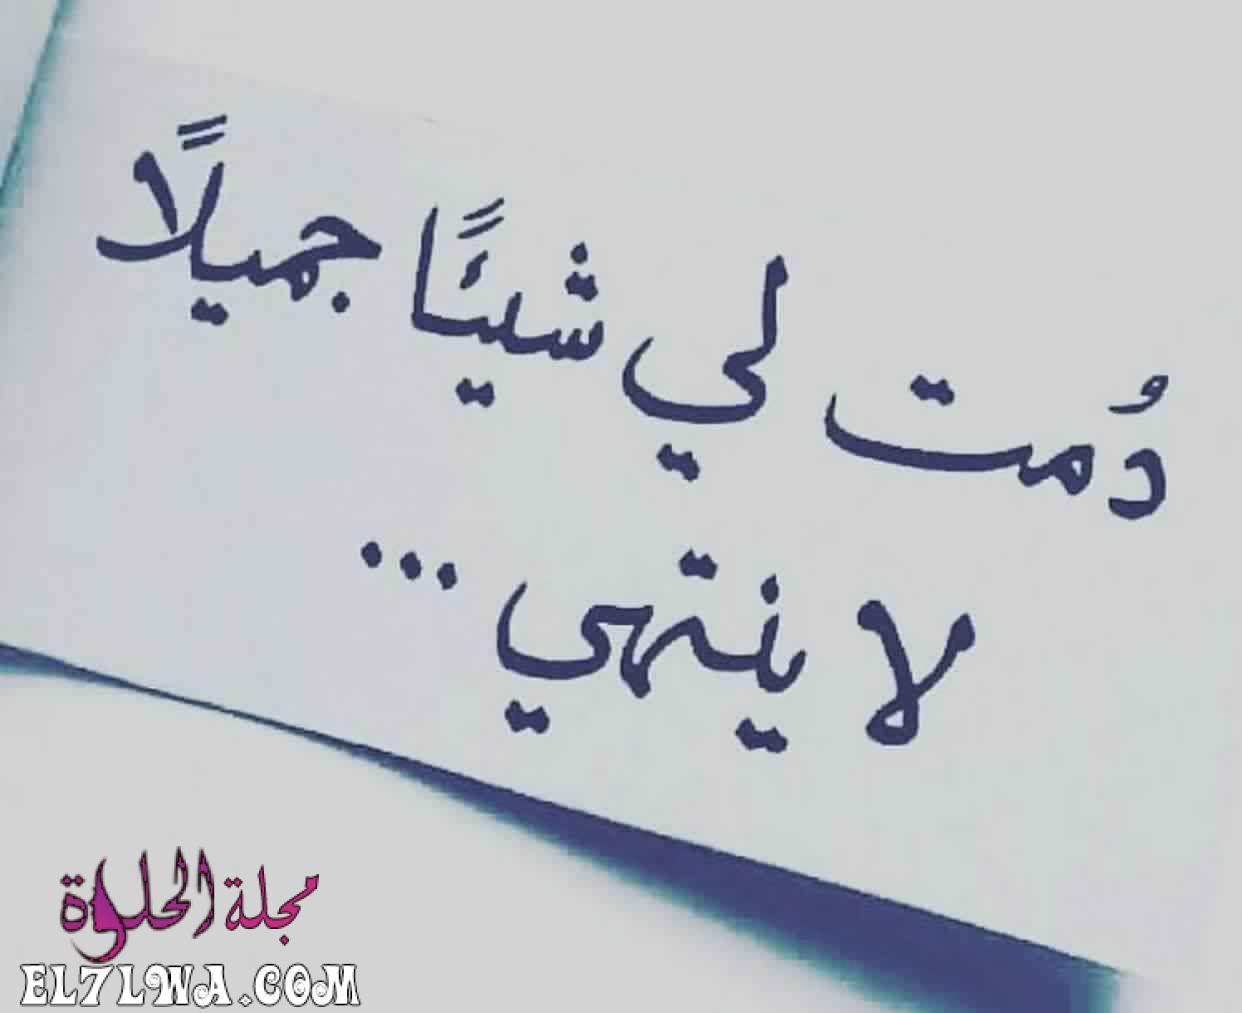 دُمت لي شيئًا جميلًا
لا ينتهي ...
مجلة الحلوة
EL7LWA.COM